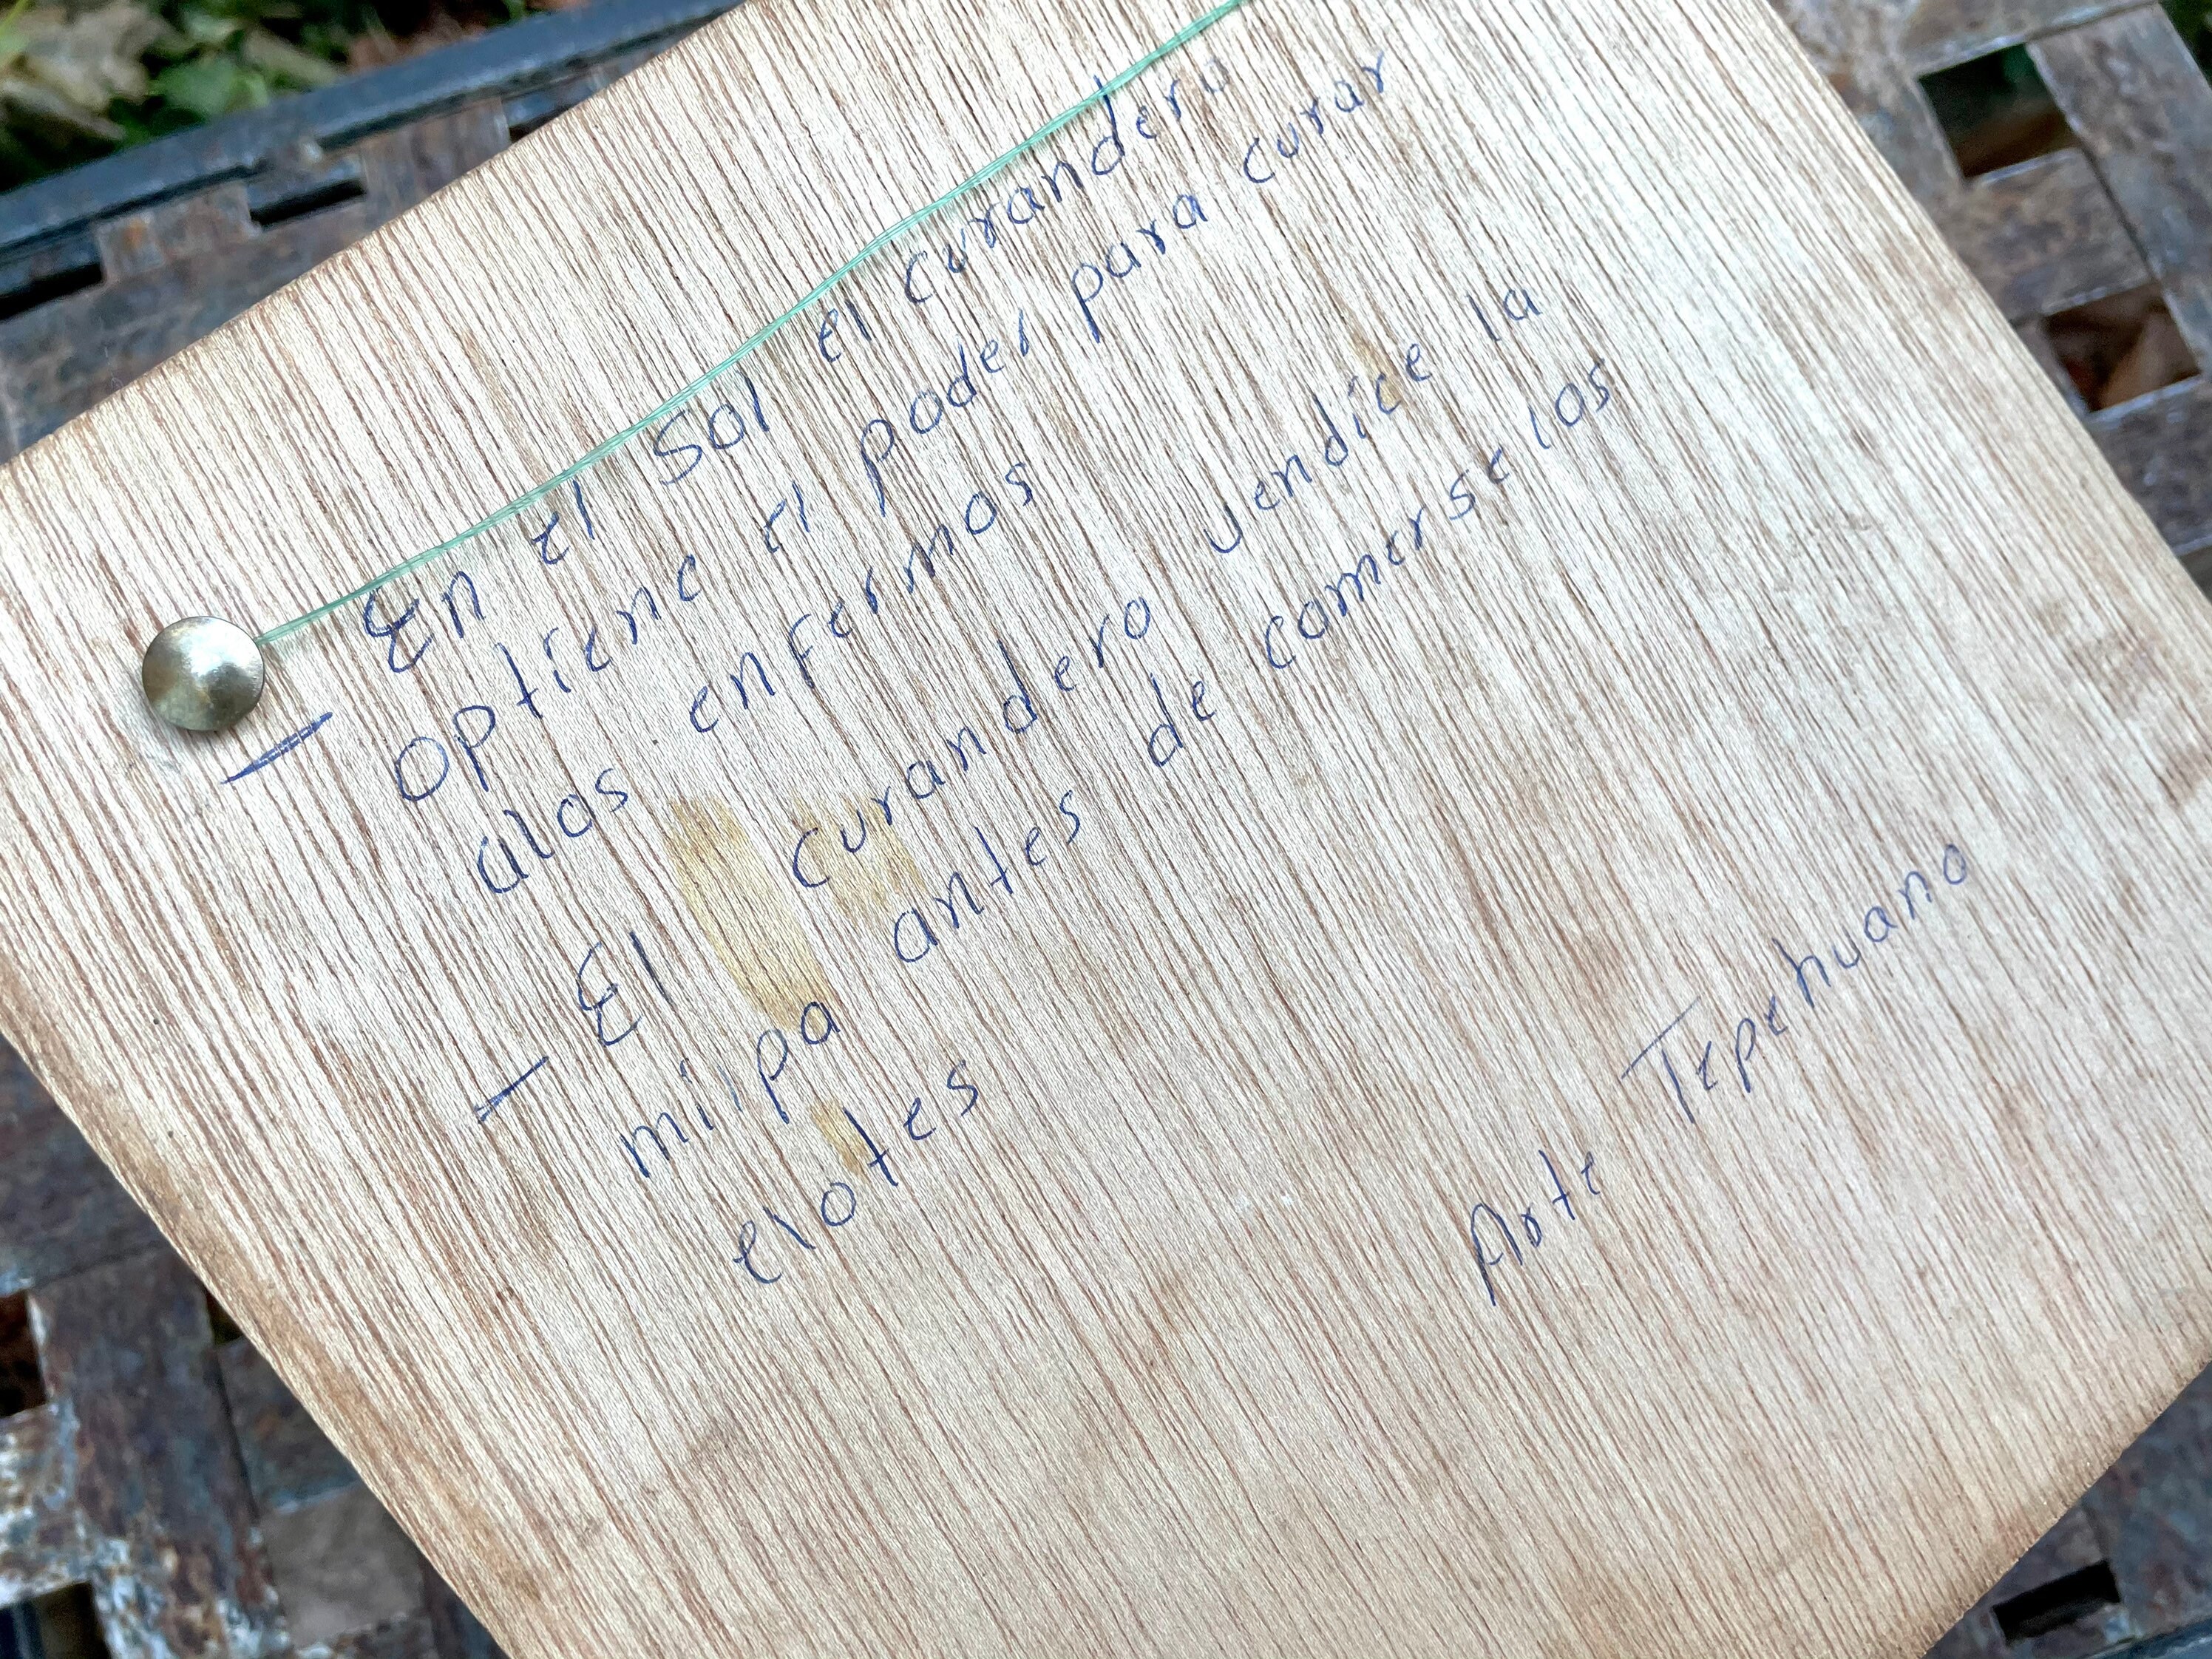 — En el sol el curandero
optiene el poder para curar
alos enfermos
— El curandero vendice la
milpa antes de comerse los
elotes
Arte Tepehuano